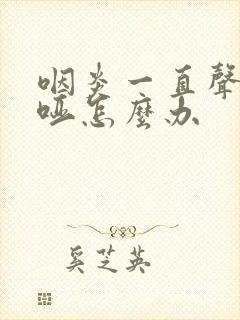 咽炎一直聲
啞怎麼办
奚芝英